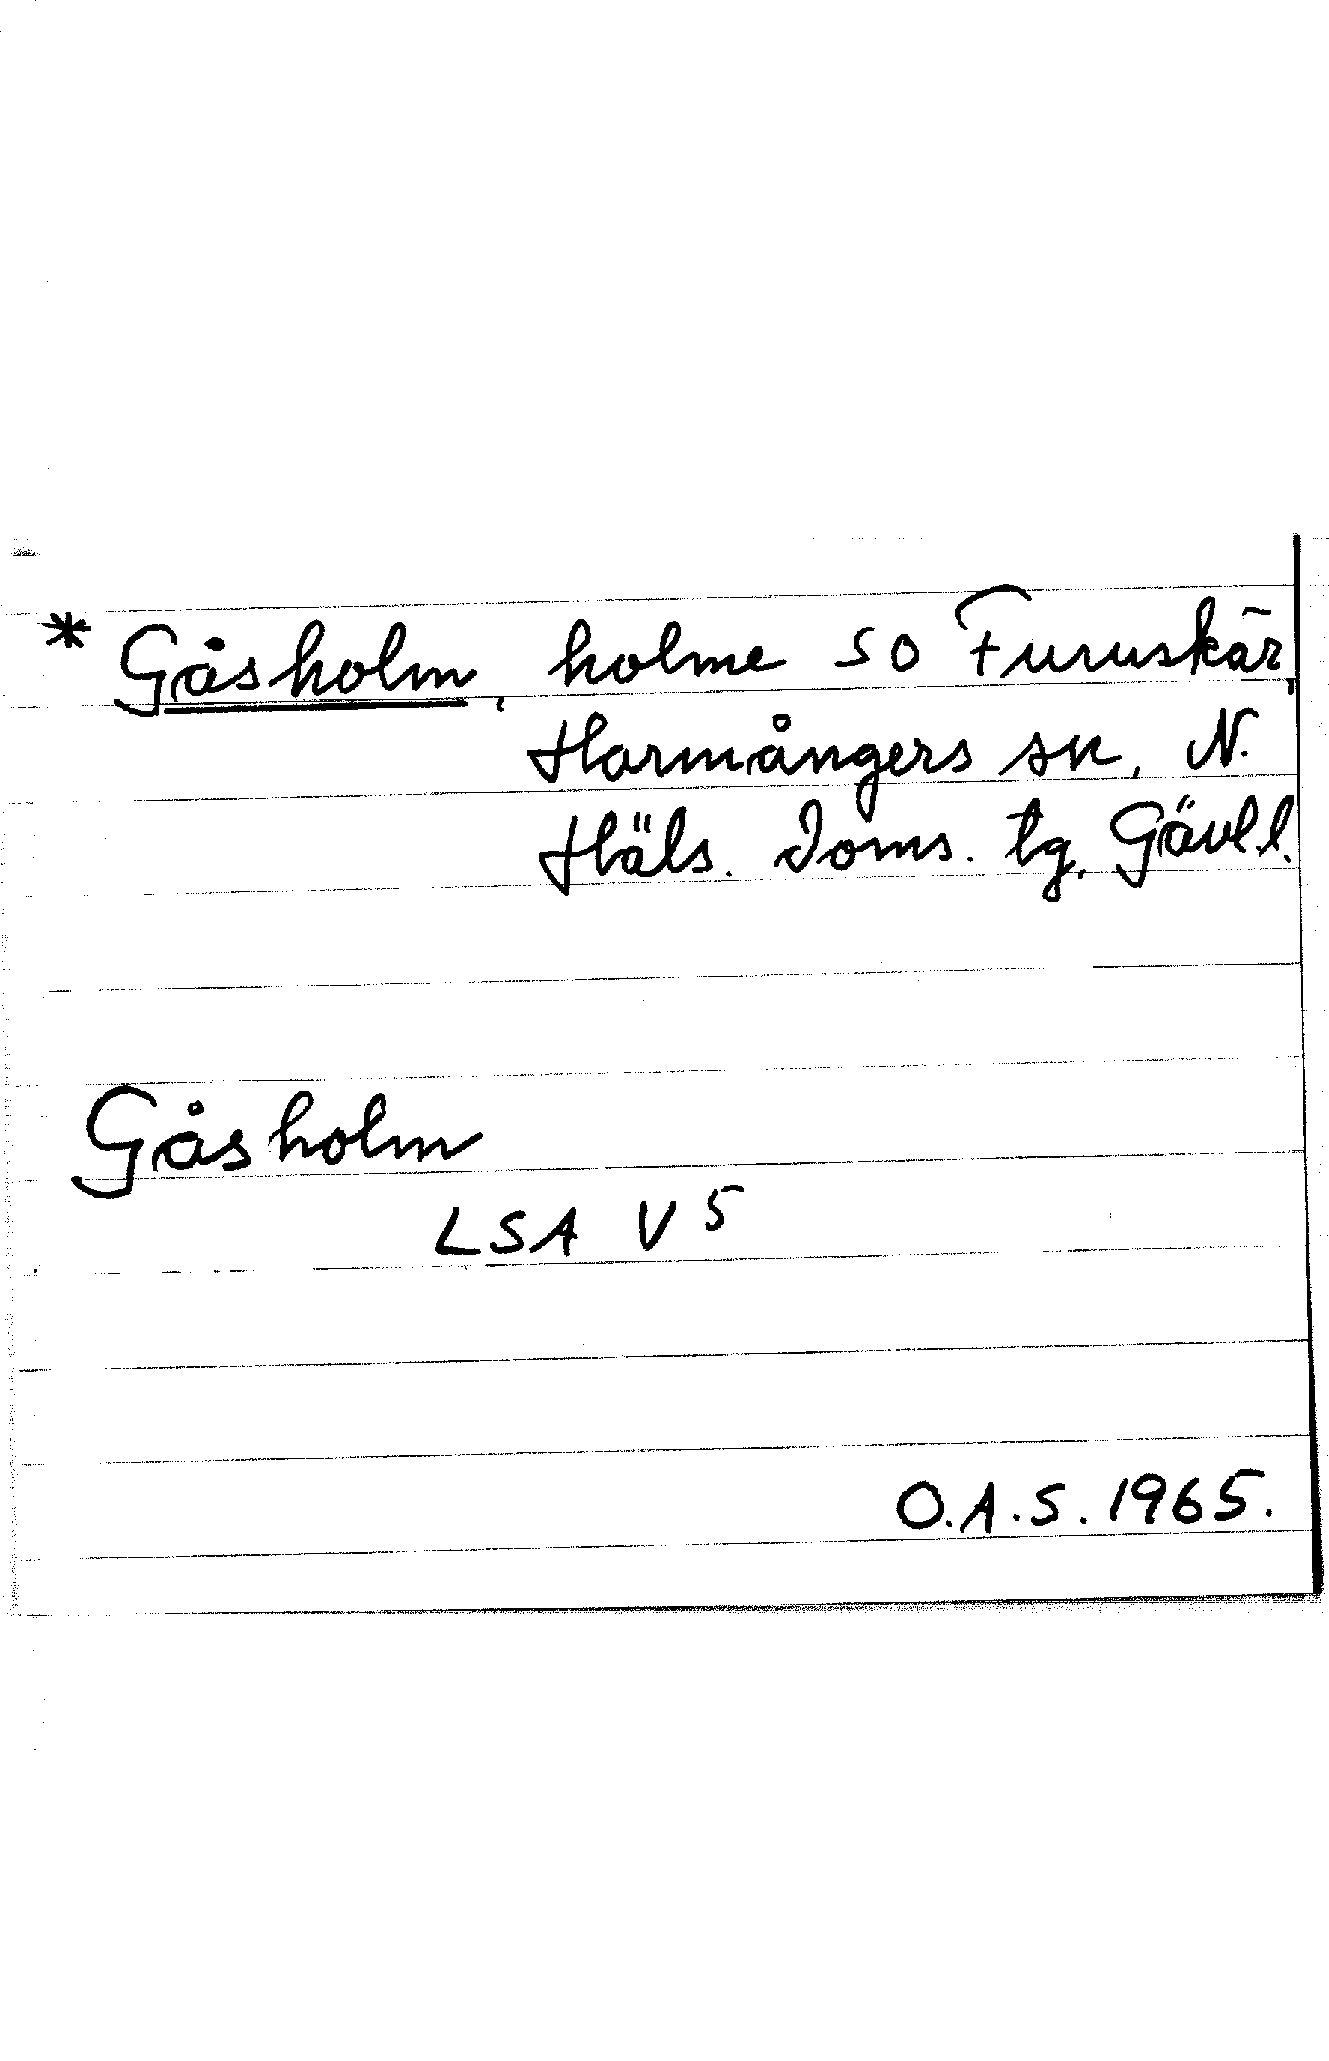 * Gåsholm, holme SO Furuskär,
Harmångers sn, N.
Häls. doms. tg, Gävl.l.
Gåsholm
LSA V 5
O.A.S. 1965.